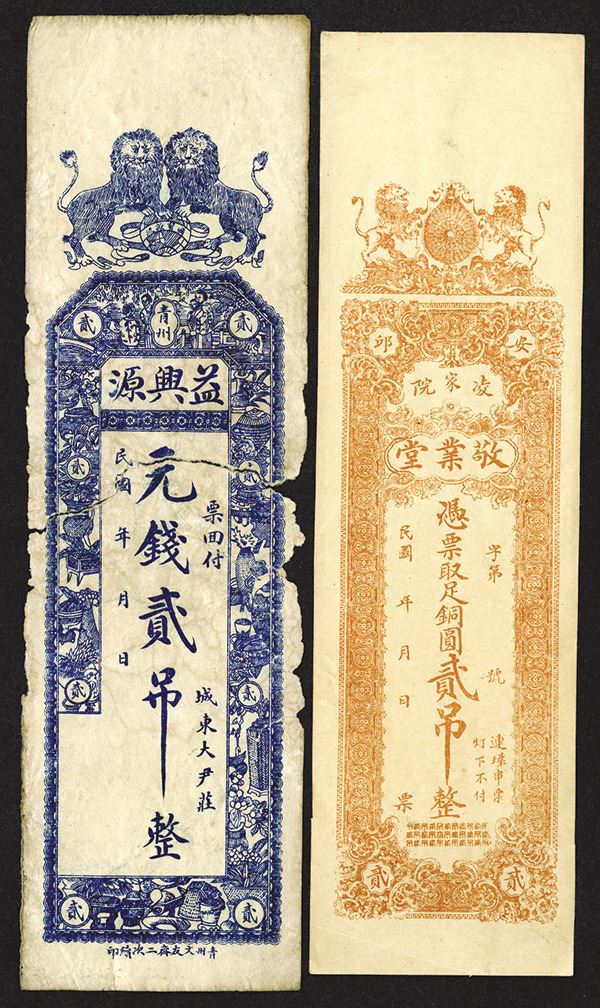 貳 青州 貳
益興源
票囬付
城東大尹莊
元錢貳吊整
民國 年 月 日
貳 貳
貳 貳
貳 貳
青州文友齋二次續印
安邱
凌家院
敬業堂
字第 號
連環串票
灯下不付
憑票取足銅圓貳吊整
民國 年 月 日 票
貳 貳